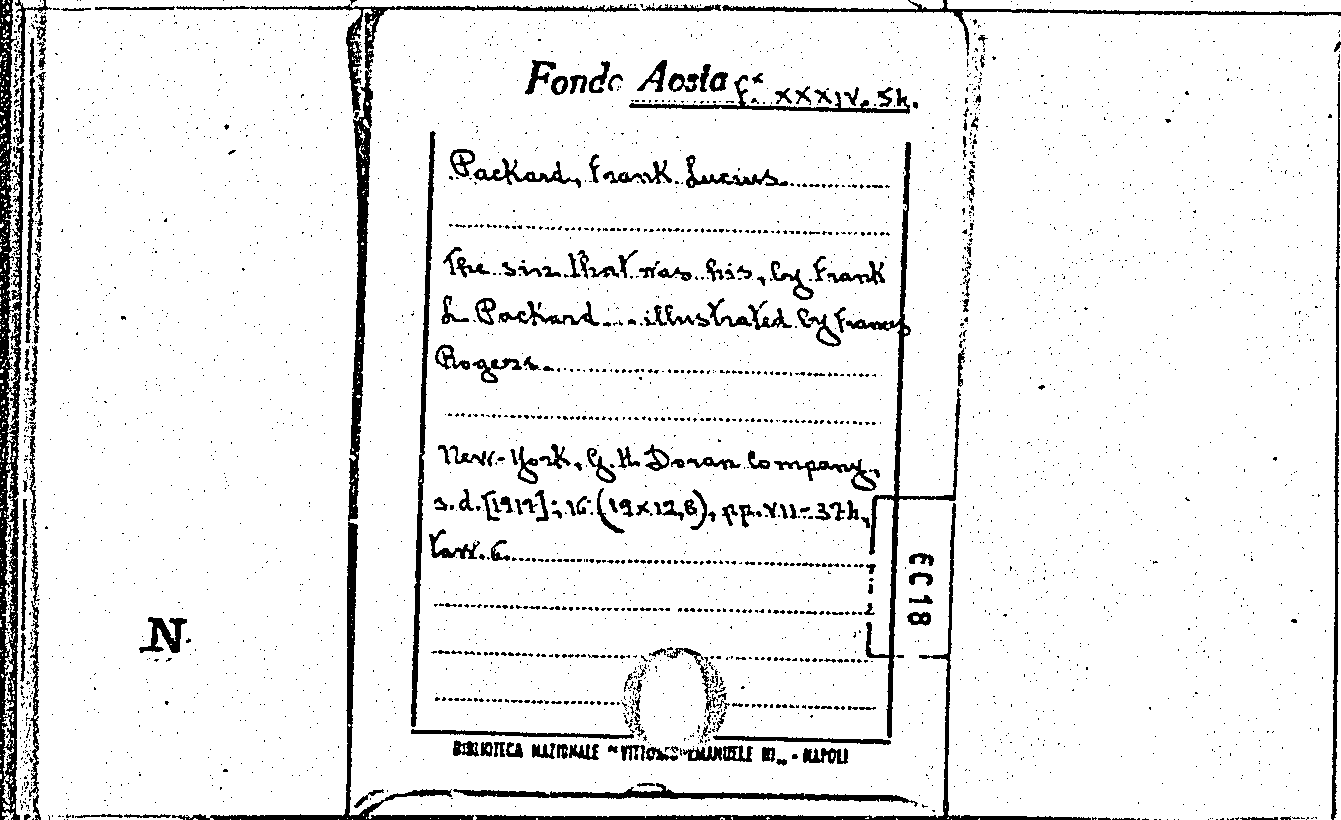 Fondo Aosta XXXIV. 54.
Packard, Frank Lucius
The sin that was his, by Frank
L. Packard... illustrated by Frances
Rogers.
New-York, G. H. Doran Company,
s.d. [1917]; 16. (19x12,8), pp. VII-374,
tav. 6.
6018
N
BIBLIOTECA NAZIONALE "VITTORIO EMANUELE III" - NAPOLI